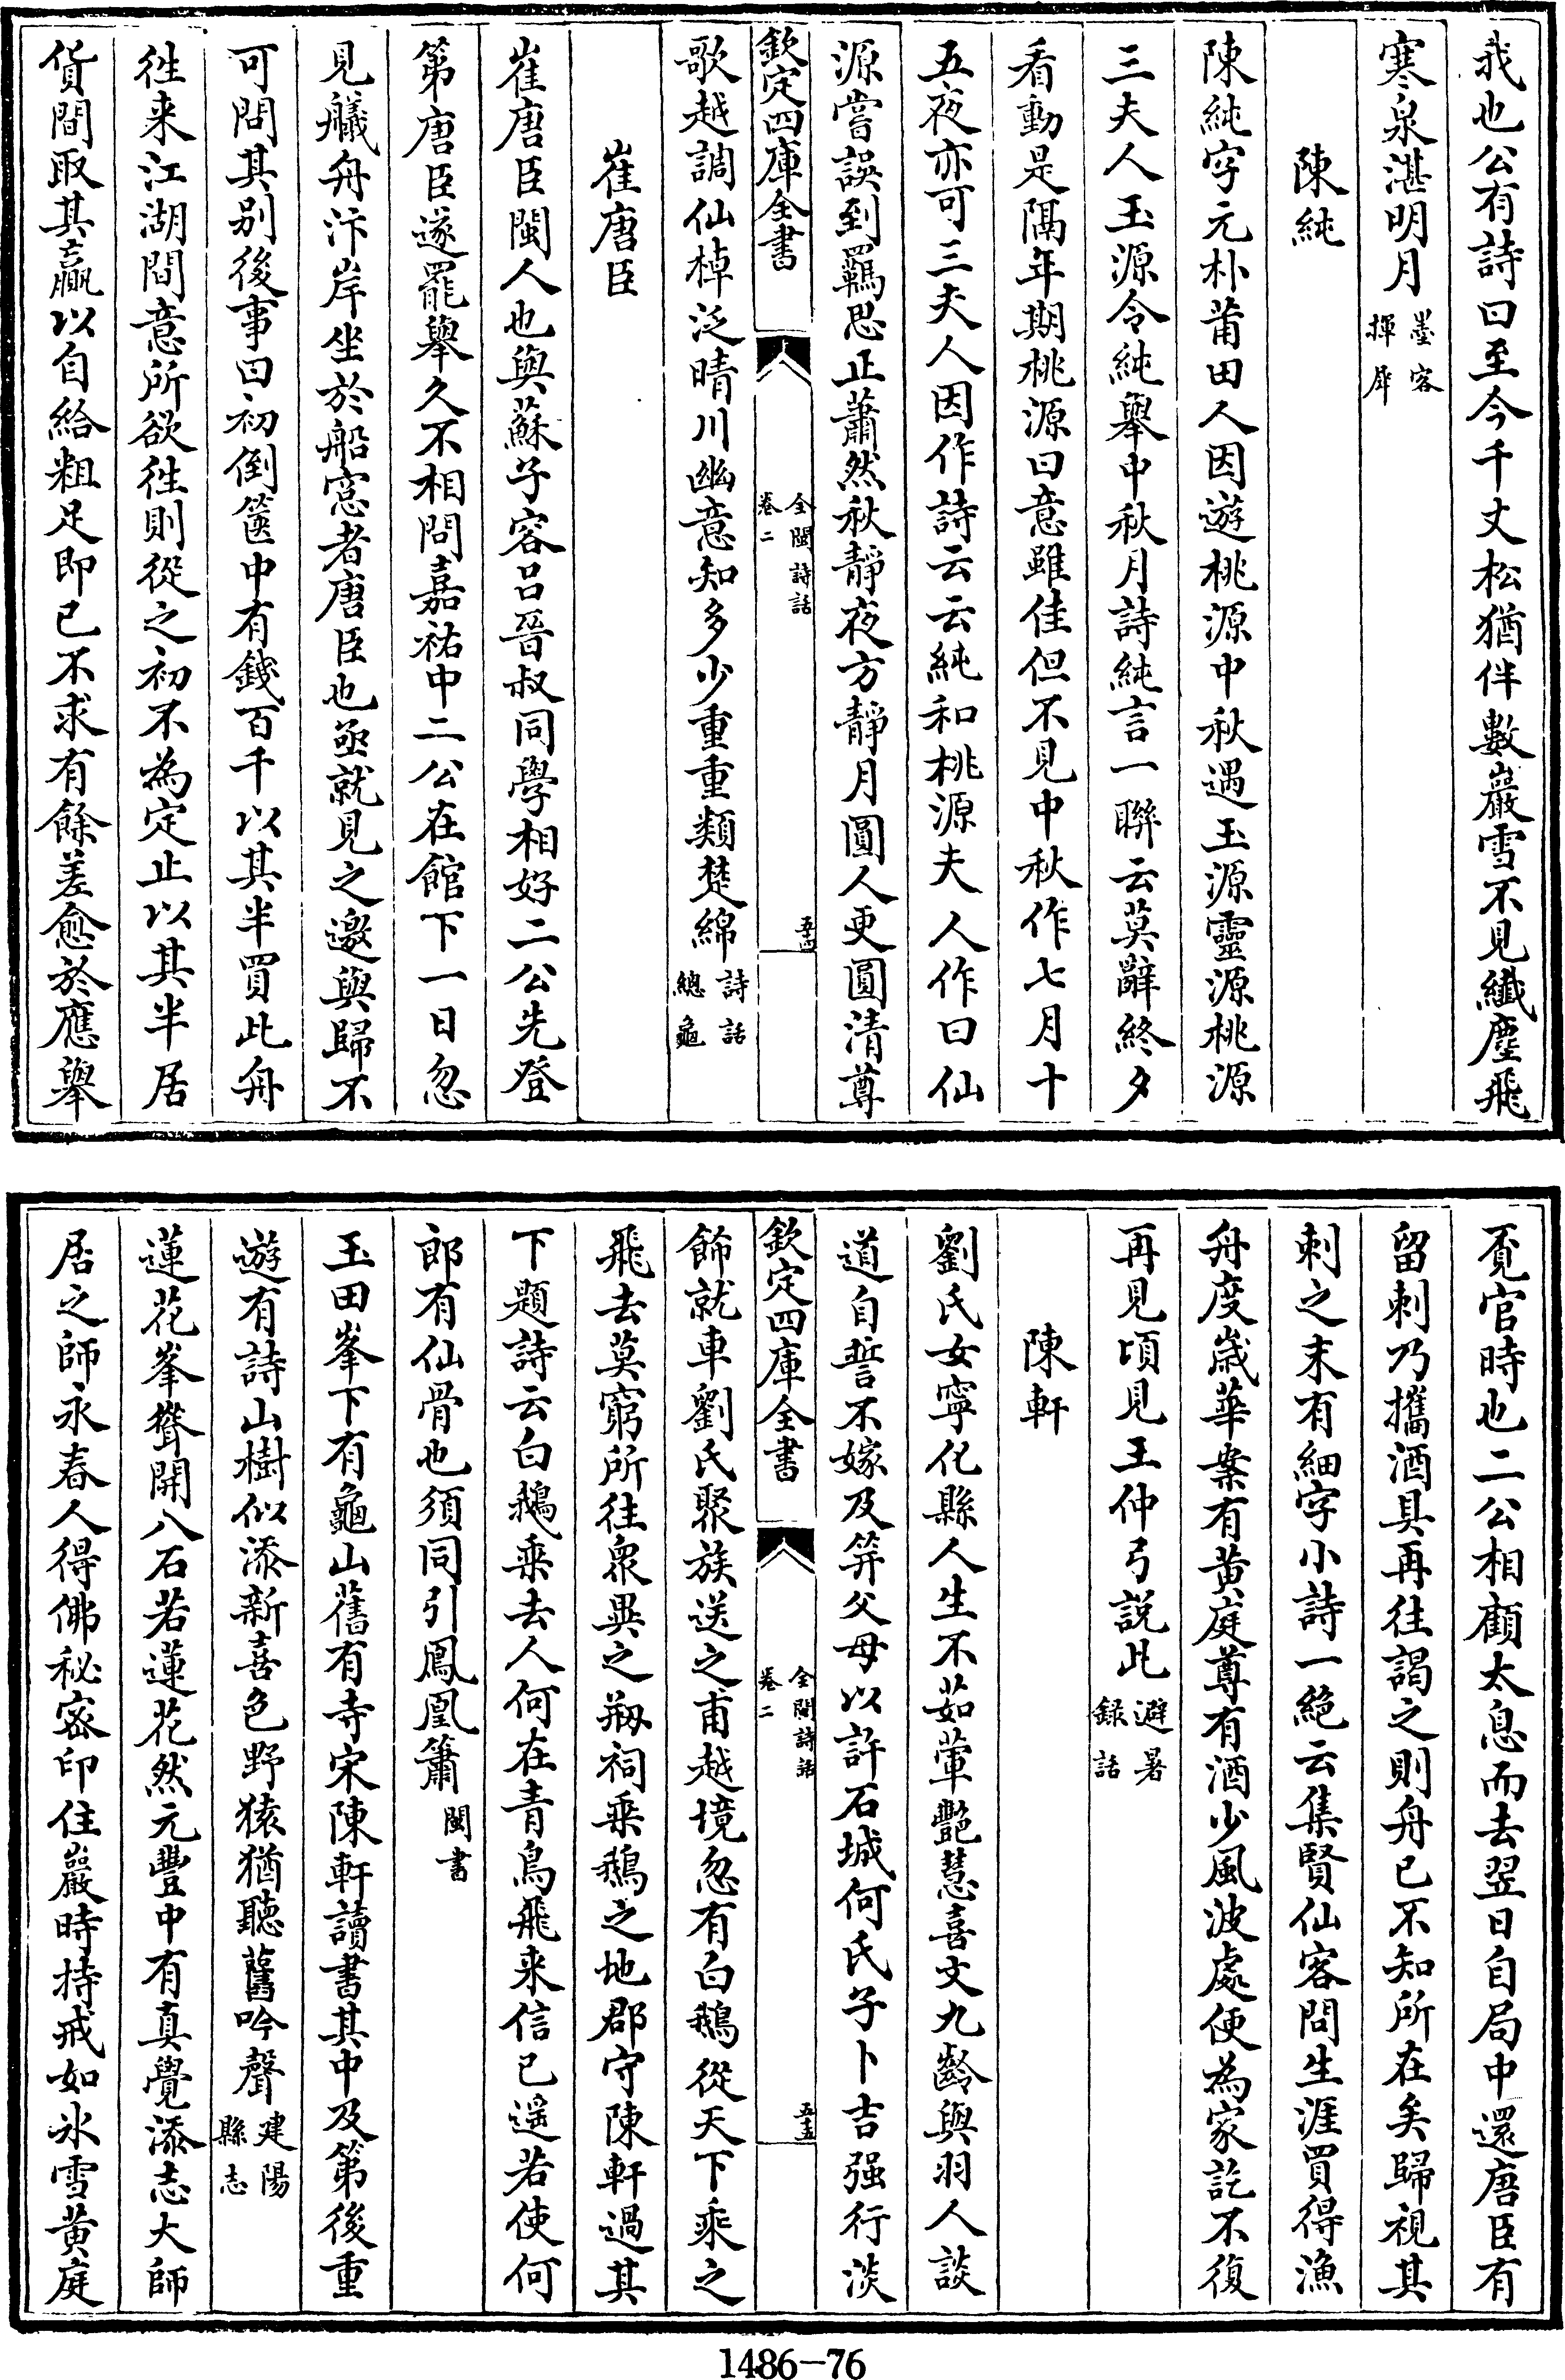 我也公有詩曰至今千丈松猶伴數巖雪不見纖塵飛
寒泉湛明月墨客揮犀
陳純
陳純字元朴莆田人因遊桃源中秋遇玉源靈源桃源
三夫人玉源令純舉中秋月詩純言一聯云莫辭終夕
看動是隔年期桃源曰意雖佳但不見中秋作七月十
五夜亦可三夫人因作詩云云純和桃源夫人作曰仙
源嘗誤到羈思正蕭然秋靜夜方靜月圓人更圓清尊
欽定四庫全書
全閩詩話
卷二
五十四
歌越調仙棹泛晴川幽意知多少重重類楚綿詩話總龜
崔唐臣
崔唐臣閩人也與蘇子容呂晉叔同學相好二公先登
第唐臣遂罷舉久不相問嘉祐中二公在館下一日忽
見艤舟汴岸坐於船窓者唐臣也亟就見之邀與歸不
可問其别後事曰初倒篋中有錢百千以其半買此舟
徃来江湖間意所欲徃則從之初不為定止以其半居
貨間取其贏以自給粗足即已不求有餘差愈於應舉
覔官時也二公相顧太息而去翌日自局中還唐臣有
留刺乃攜酒具再往謁之則舟已不知所在矣歸視其
刺之末有細字小詩一絶云集賢仙客問生涯買得漁
舟度歲華案有黄庭尊有酒少風波處便為家訖不復
再見頃見王仲弓説此避暑録話
陳軒
劉氏女寧化縣人生不茹葷艷慧喜文九齡與羽人談
道自誓不嫁及笄父母以許石城何氏子卜吉强行淡
欽定四庫全書
全閩詩話
卷二
五十五
飾就車劉氏聚族送之甫越境忽有白鵝從天下乘之
飛去莫窮所往衆異之剏祠乗鵝之地郡守陳軒過其
下題詩云白鵝乗去人何在青鳥飛来信已遥若使何
郎有仙骨也須同引鳳凰簫閩書
玉田峯下有龜山舊有寺宋陳軒讀書其中及第後重
遊有詩山樹似添新喜色野猿猶聽舊吟聲建陽縣志
蓮花峯聳開八石若蓮花然元豐中有真覺添志大師
居之師永春人得佛秘密印住巖時持戒如氷雪黄庭
1486-76